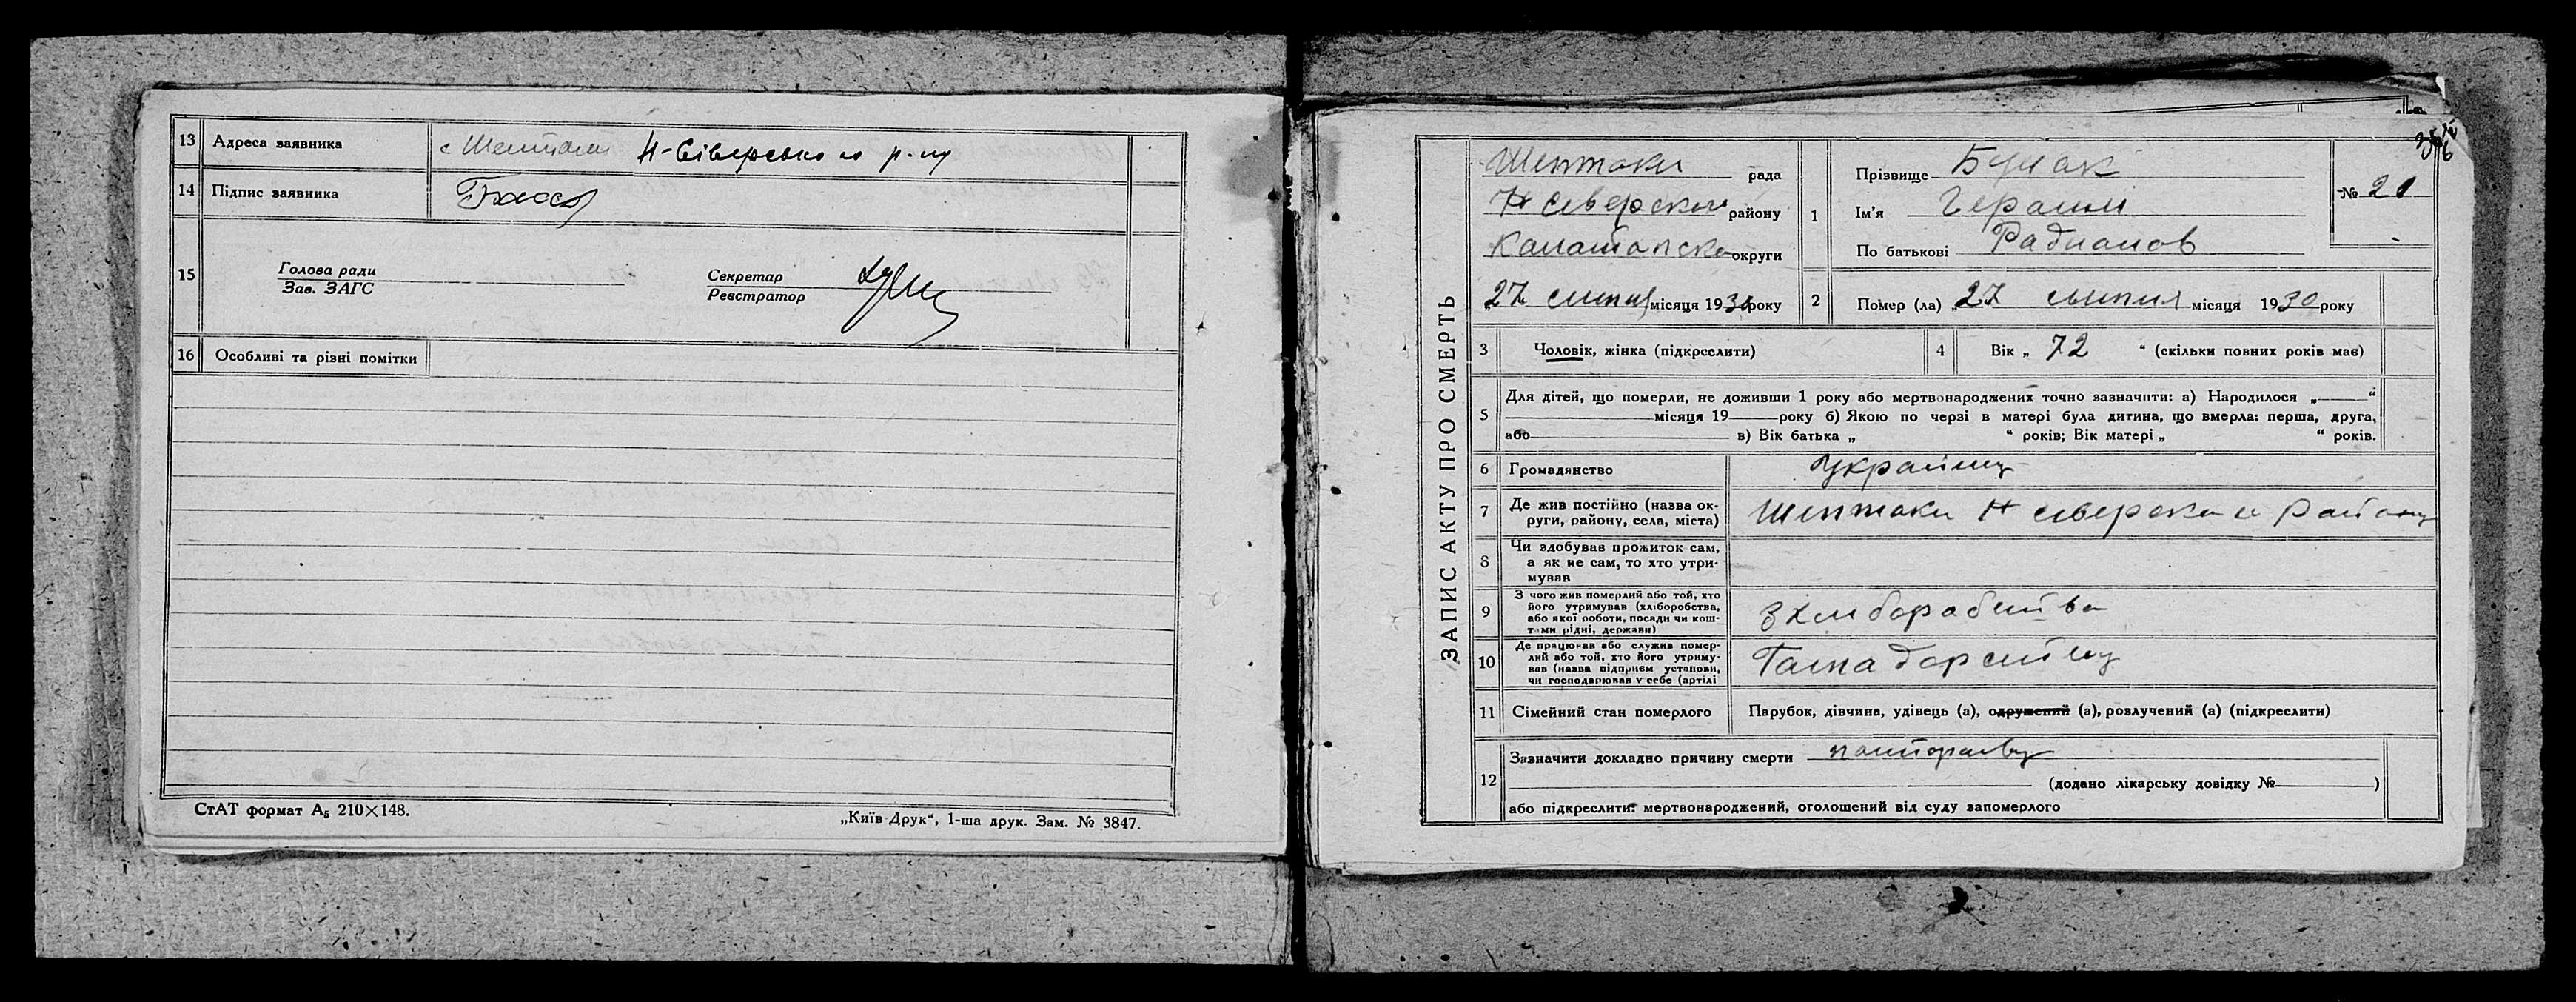 13 Адреса заявника с Шептаки Н-Сіверсько го р-ну
14 Підпис заявника
15 Голова ради
Зав. ЗАГС
Секретар
Реєстратор
16 Особливі та різні помітки
СтАТ формат А₅ 210×148.
„Київ-Друк“, 1-ша друк. Зам. № 3847.
ЗАПИС АКТУ ПРО СМЕРТЬ
Шептаки рада
Н Сіверского району
округи
„27 липня місяця 1930 року
1 Прізвище
Ім'я
По батькові Радионов
№ 20
2 Помер (ла) „27 липня місяця 1930 року
3 Чоловік, жінка (підкреслити)
4 Вік „ 72 “ (скільки повних років має)
5 Для дітей, що померли, не доживши 1 року або мертвонароджених точно зазначити: а) Народилося „ “
місяця 19 року б) Якою по черзі в матері була дитина, що вмерла: перша, друга,
або в) Вік батька „ “ років; Вік матері „ “ років.
6 Громадянство
7 Де жив постійно (назва ок-
руги, району, села, міста) Шептаки Н сіверского Району
8 Чи здобував прожиток сам,
а як не сам, то хто утри-
мував
9 З чого жив померлий або той, хто
його утримував (хліборобства,
або якої роботи, посади чи кош-
тами рідні, держави)
З хліборобства
10 Де працював або служив помер-
лий або той, хто його утриму-
вав (назва підприєм установи,
чи господарював у себе (артілі
11 Сімейний стан померлого Парубок, дівчина, удівець (а), одружений (а), розлучений (а) (підкреслити)
12 Зазначити докладно причину смерти
(додано лікарську довідку № )
або підкреслити: мертвонароджений, оголошений від суду запомерлого